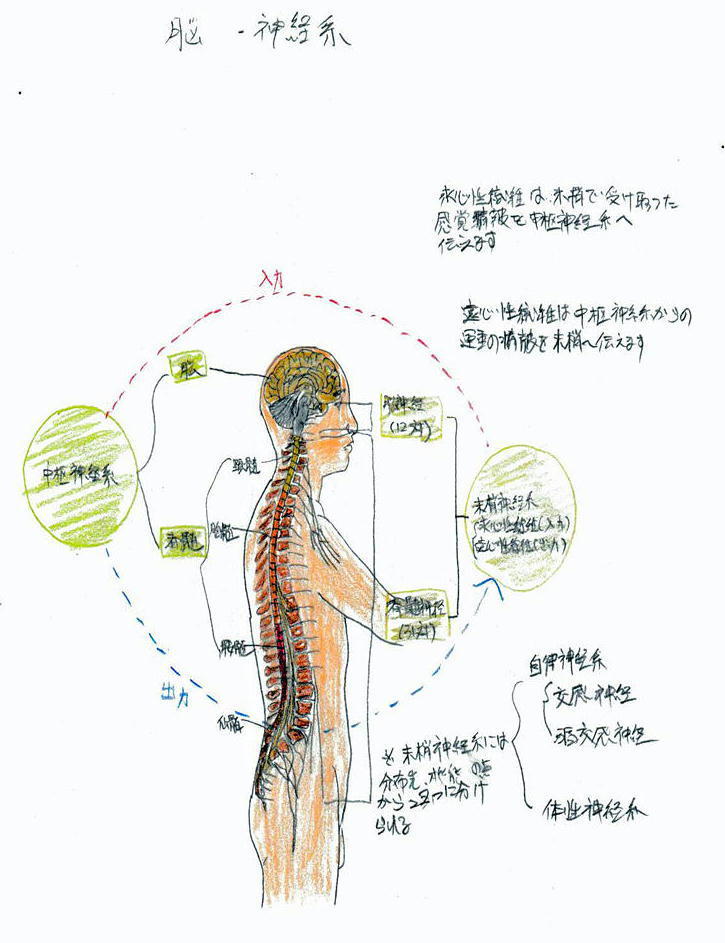 脳・神経系
求心性線維は末梢で受け取った
感覚情報を中枢神経系へ
伝えます
遠心性線維は中枢神経系からの
運動の情報を末梢へ伝えます
入力
脳
脳神経
(12対)
中枢神経系
頸髄
末梢神経系
求心性線維(入力)
遠心性線維(出力)
脊髄
胸髄
脊髄神経
(31対)
腰髄
出力
仙髄
※末梢神経系には
分布先、機能の点
から2つに分け
られる
自律神経系
交感神経
副交感神経
体性神経系